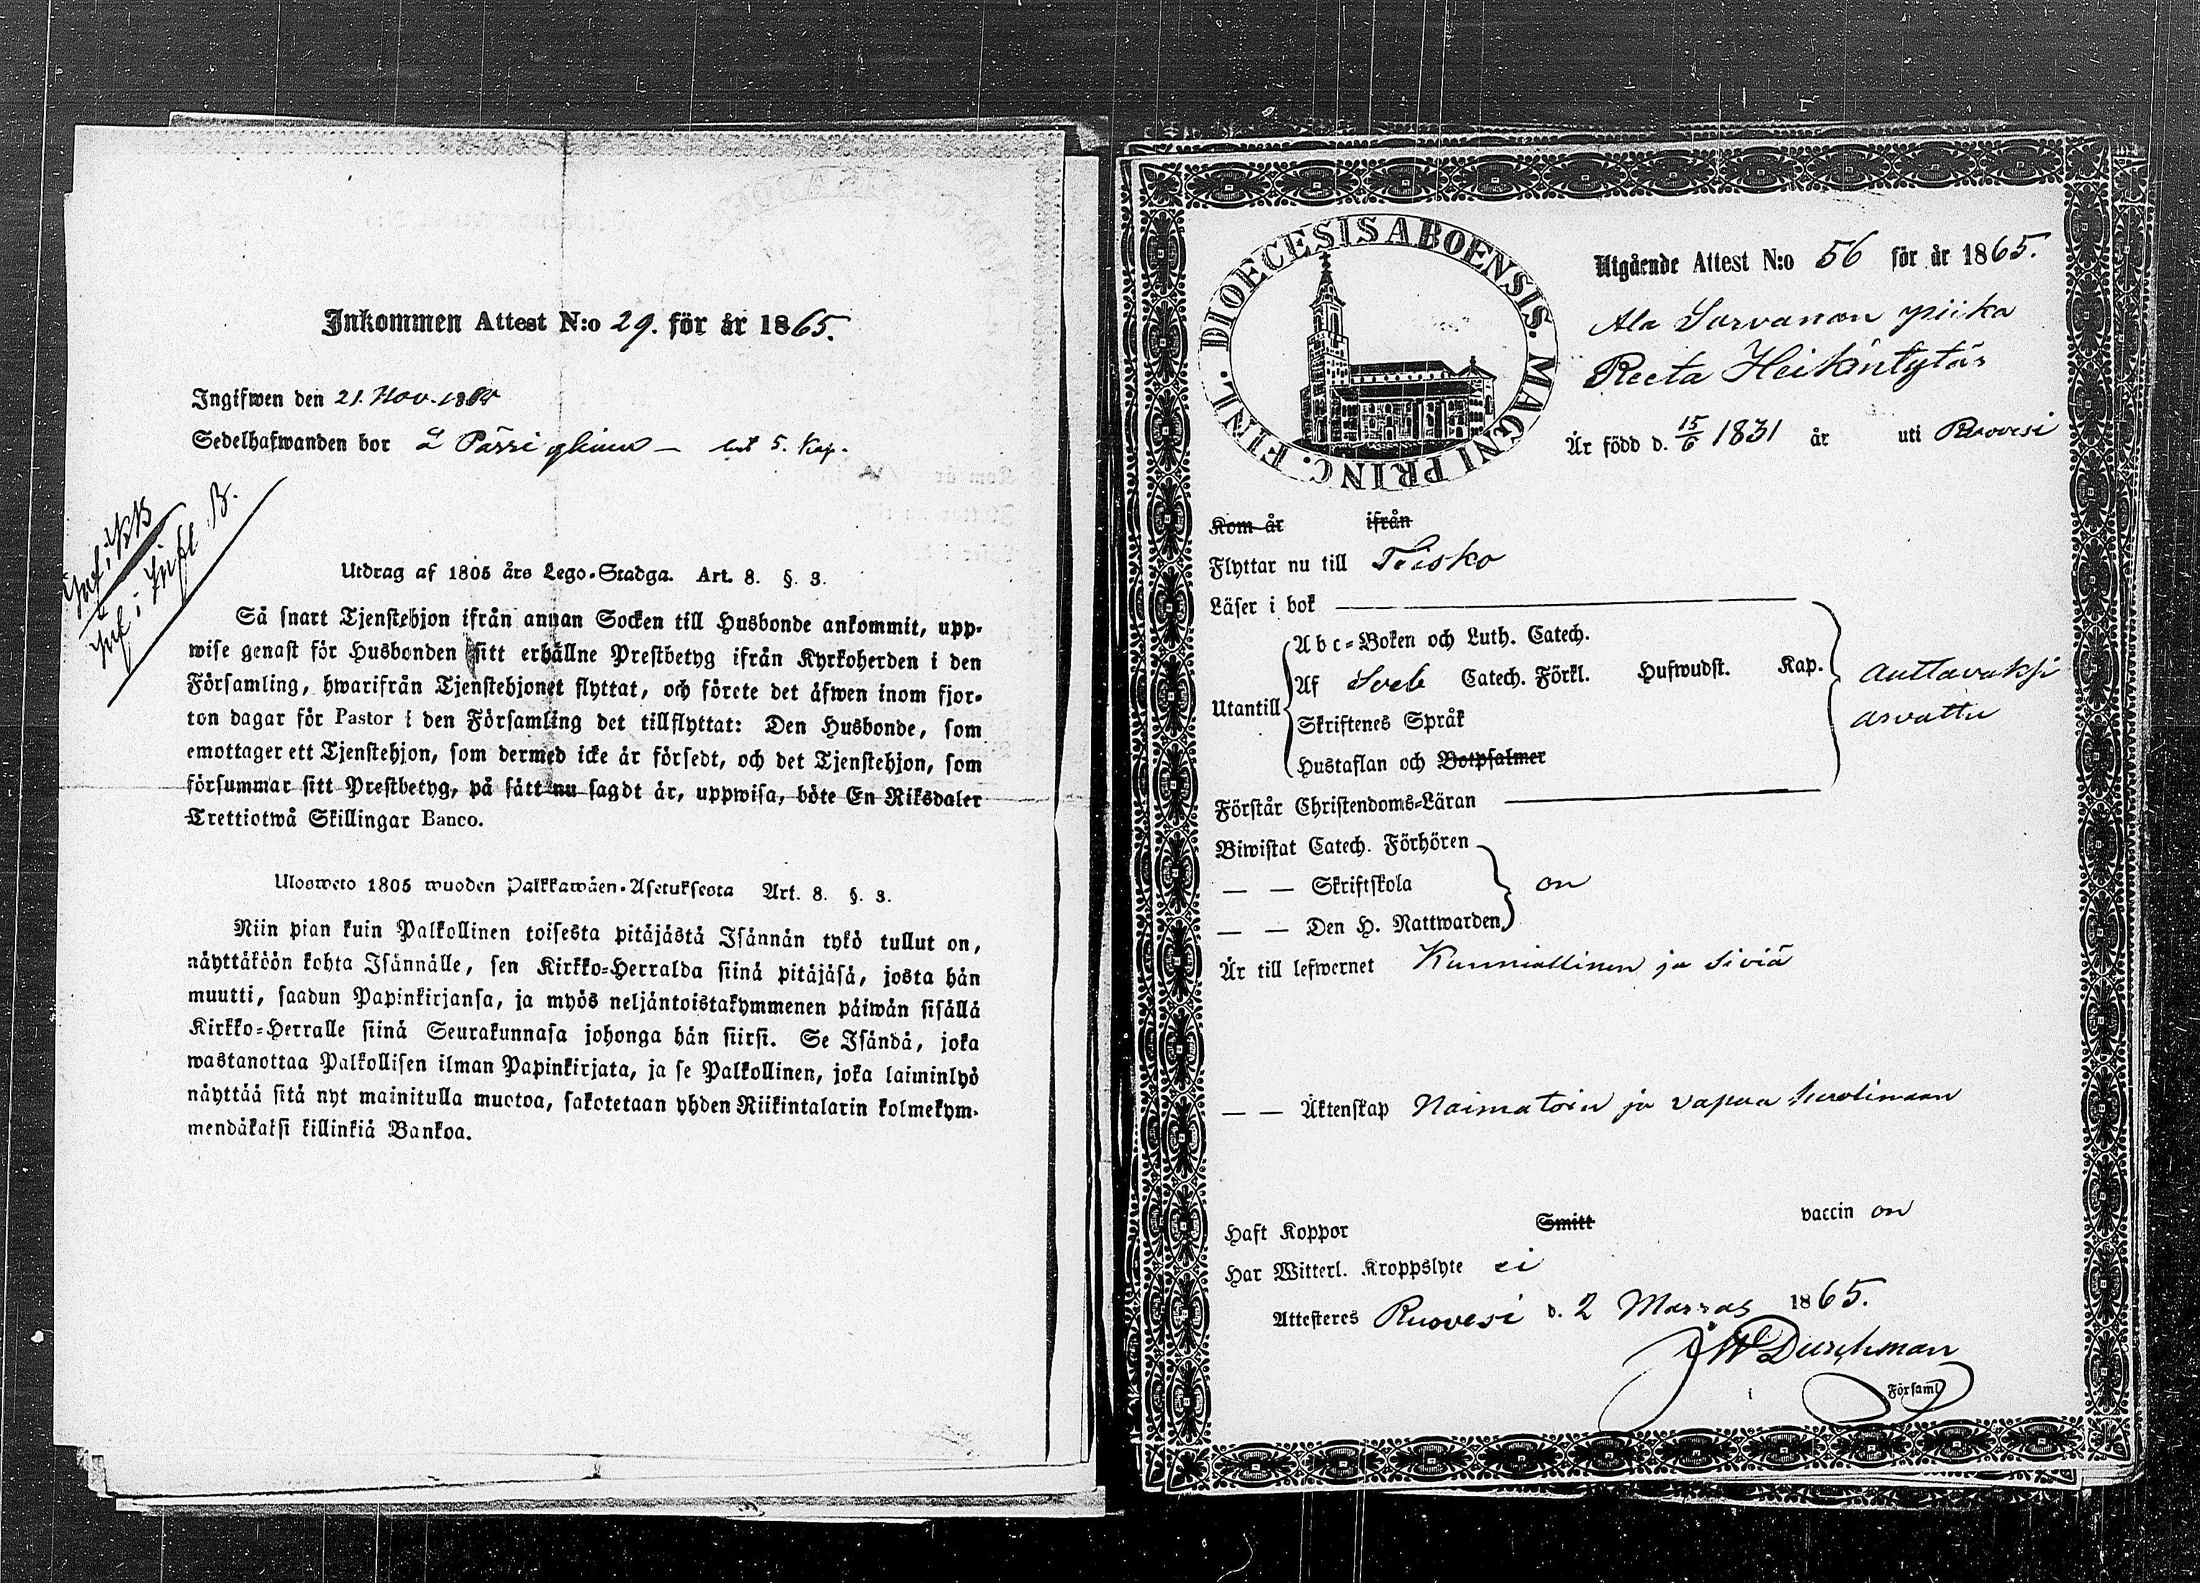 Inkommen Attest N:o 29. för år 1865.
Ingifwen den 21. Nov. 1865
Sedelhafwanden bor
Utdrag af 1805 års Lego-Stadga. Art. 8. §. 3.
Så snart Tjenstehjon ifrån annan Socken till Husbonde ankommit, upp-
wise genast för Husbonden sitt erhållne Prestbetyg ifrån Kyrkoherden i den
Församling, hwarifrån Tjenstehjonet flyttat, och förete det äfwen inom fjor-
ton dagar för Pastor i den Församling det tillflyttat: Den Husbonde, som
emottager ett Tjenstehjon, som dermed icke är försedt, och det Tjenstehjon, som
försummar sitt Prestbetyg, på sätt nu sagdt är, uppwisa, böte En Riksdaler
Trettiotwå Skillingar Banco.
Ulosweto 1805 wuoden Palkkawäen-Asetuksesta Art. 8. §. 3.
Niin pian kuin Palkollinen toisesta pitäjästä Isännän tykö tullut on,
näyttäköön kohta Isännälle, sen Kirkko-Herralda siinä pitäjäsä, josta hän
muutti, saadun Papinkirjansa, ja myös neljäntoistakymmenen päiwän sisällä
Kirkko-Herralle siinä Seurakunnasa johonga hän siirsi. Se Isändä, joka
wastanottaa Palkollisen ilman Papinkirjata, ja se Palkollinen, joka laiminlyö
näyttää sitä nyt mainitulla muotoa, sakotetaan yhden Riikintalarin kolmekym-
mendäkaksi killinkiä Bankoa.
DIOECESIS ABOENSIS. MAGNI PRINC. FINL.
Utgående Attest N:o 56 för år 1865.
Ala Sarvanan piika
Reeta Heikintytär
Är född d. 15/6 1831 år uti Ruovesi
Kom år ifrån
Flyttar nu till Teisko
Läser i bok
Abc-Boken och Luth. Catech.
Utantill Af Sveb Catech. Förkl. Hufwudst. Kap. auttavaksi
Skriftenes Språk asvattu
Hustaflan och Botpsalmer
Förstår Christendoms-Läran
Biwistat Catech. Förhören
— — Skriftskola on
— — Den H. Nattwarden
Är till lefwernet Kunniallinen ja siviä
— — Äktenskap Naimatoin ja vapaa
Haft Koppor Smitt vaccin on
Har Witterl. Kroppslyte ei
Attesteres Ruovesi d. 2 Marras 1865.
JW Durchman
i Församl